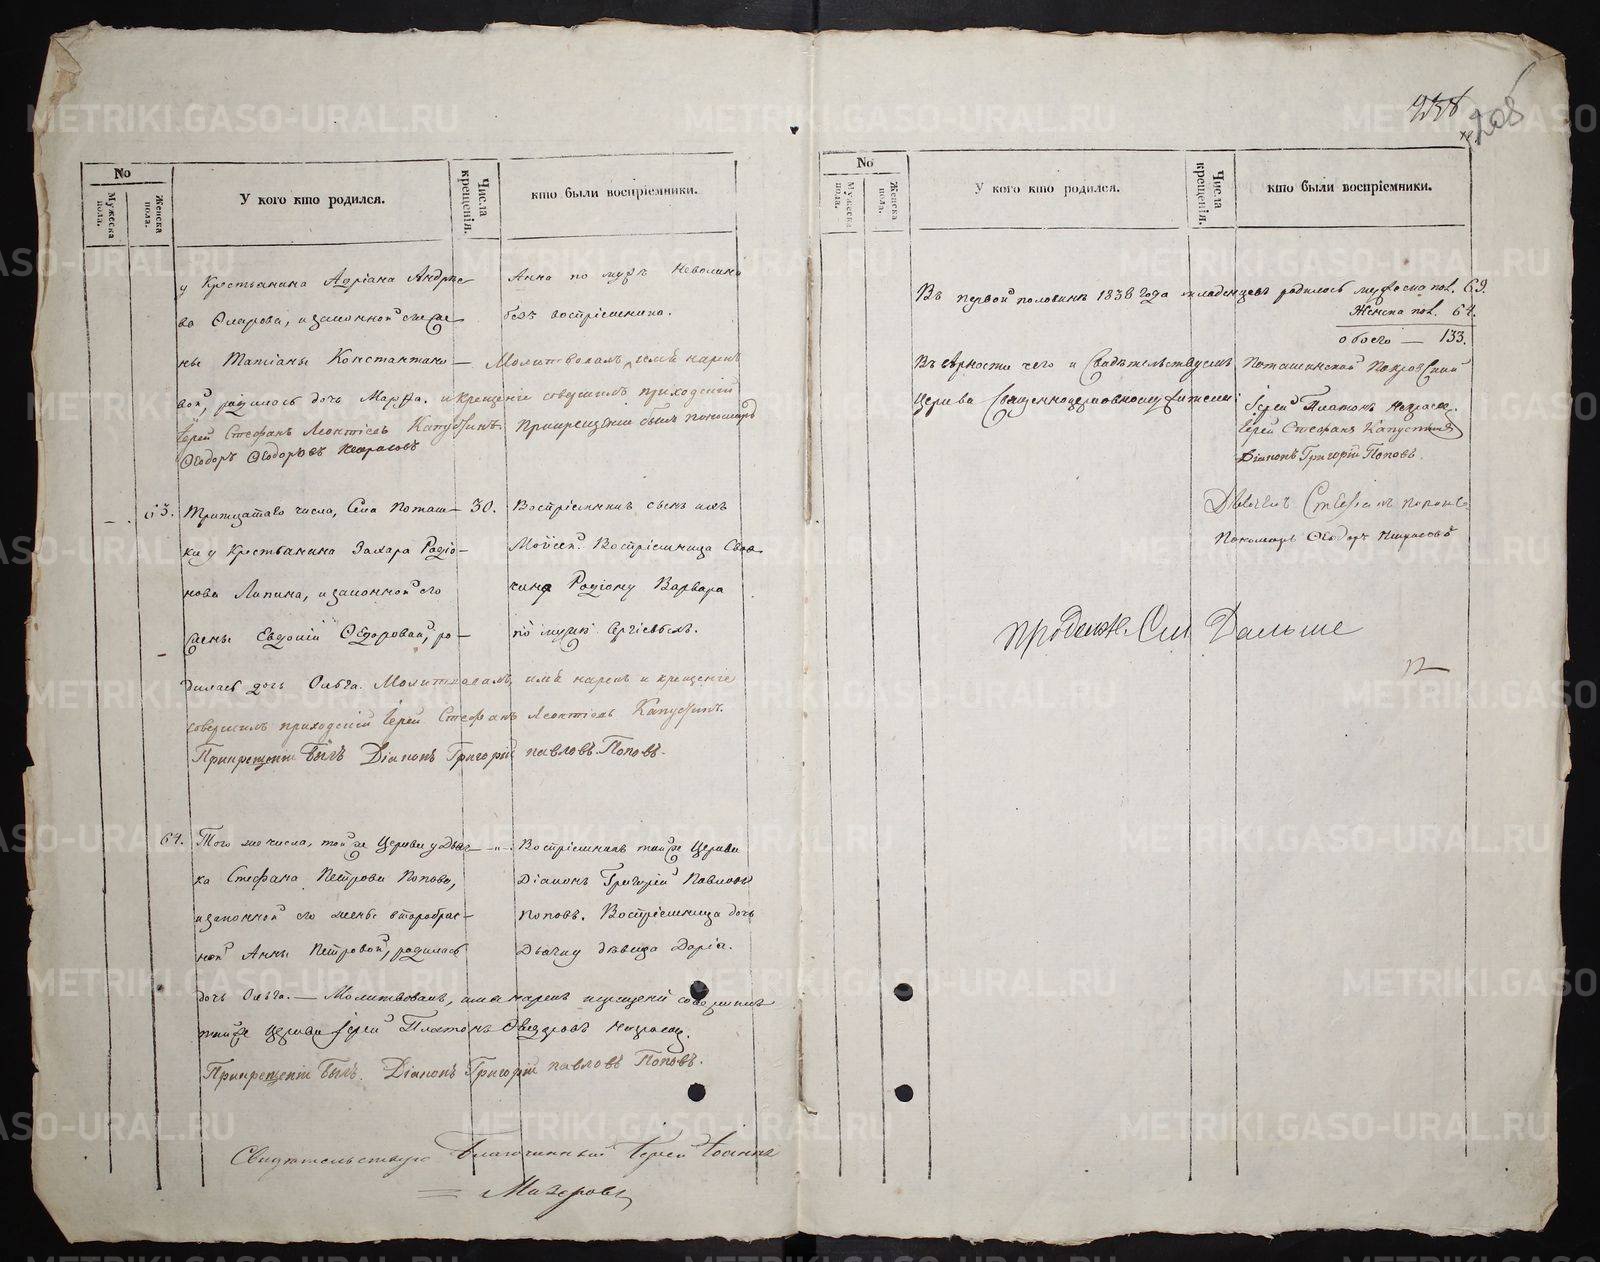 238
208
No
Мужеска пола.
Женска пола.
У кого кто родился.
Числа крещенія.
кто были воспріемники.
у Крестьянина Адріана Андрее-
ва Оларова, и законной его же-
ны Татіаны Константино-
вой, родилась дочь Марѳа. и крещеніе совершилъ приходскій
Іерей Стефанъ Леонтіевъ Капустинъ. При крещеніи былъ пономарь
Ѳеодоръ Ѳеодоровъ Некрасовъ
Анна по мужѣ Неволина
безъ воспріемника.
Молитвовалъ, имя нарекъ
63.
Тритцатаго числа, Села Поташ-
ки у Крестьянина Захара Родіо-
нова Липина, и законной его
жены Евдокіи Ѳедоровой, ро-
дилась дочь Ольга. Молитвовалъ, имя нарекъ и крещеніе
совершилъ приходскій Іерей Стефанъ Леонтіевъ Капустинъ.
При крещеніи былъ Діаконъ Григорій Павловъ Поповъ.
30.
Воспріемникъ сынъ ихъ
Моисей. Воспріемница
Родіону Варвара
по мужѣ Сергіевыхъ.
64.
Того же числа, той же Церкви у Дьяч-
ка Стефана Петрова Попова,
и законной его жены второбрач-
ной Анны Петровой, родилась
дочь Ольга. — Молитвовалъ, имя нарекъ и крещеніе совершилъ
той же Церкви Іерей Платонъ Некрасов.
При крещеніи былъ Діаконъ Григорій Павловъ Поповъ.
Воспріемникъ той же Церкви
Діаконъ Григорій Павловъ
Поповъ. Воспріемница дочь
Дьячку дѣвица Дарія.
Свидѣтельствую Благочинный Іерей Іоаннъ
Макаровъ
No
Мужеска пола.
Женска пола.
У кого кто родился.
Числа крещенія.
кто были воспріемники.
Въ первой половинѣ 1838 года младенцевъ родилось мужеска пол. 69.
Женска пол. 64.
обоего — 133.
Въ вѣрности чего и Свидѣтельствуемъ Поташинской Покровской
Церкви Священноцерковнослужители:
Іерей Платонъ Некрасов.
Іерей Стефанъ Капустинъ
Діаконъ Григорій Поповъ.
Дьячекъ Стефанъ Поповъ
Пономарь Ѳеодоръ Некрасовъ
продолж. См. Дальше
METRIKI.GASO-URAL.RU